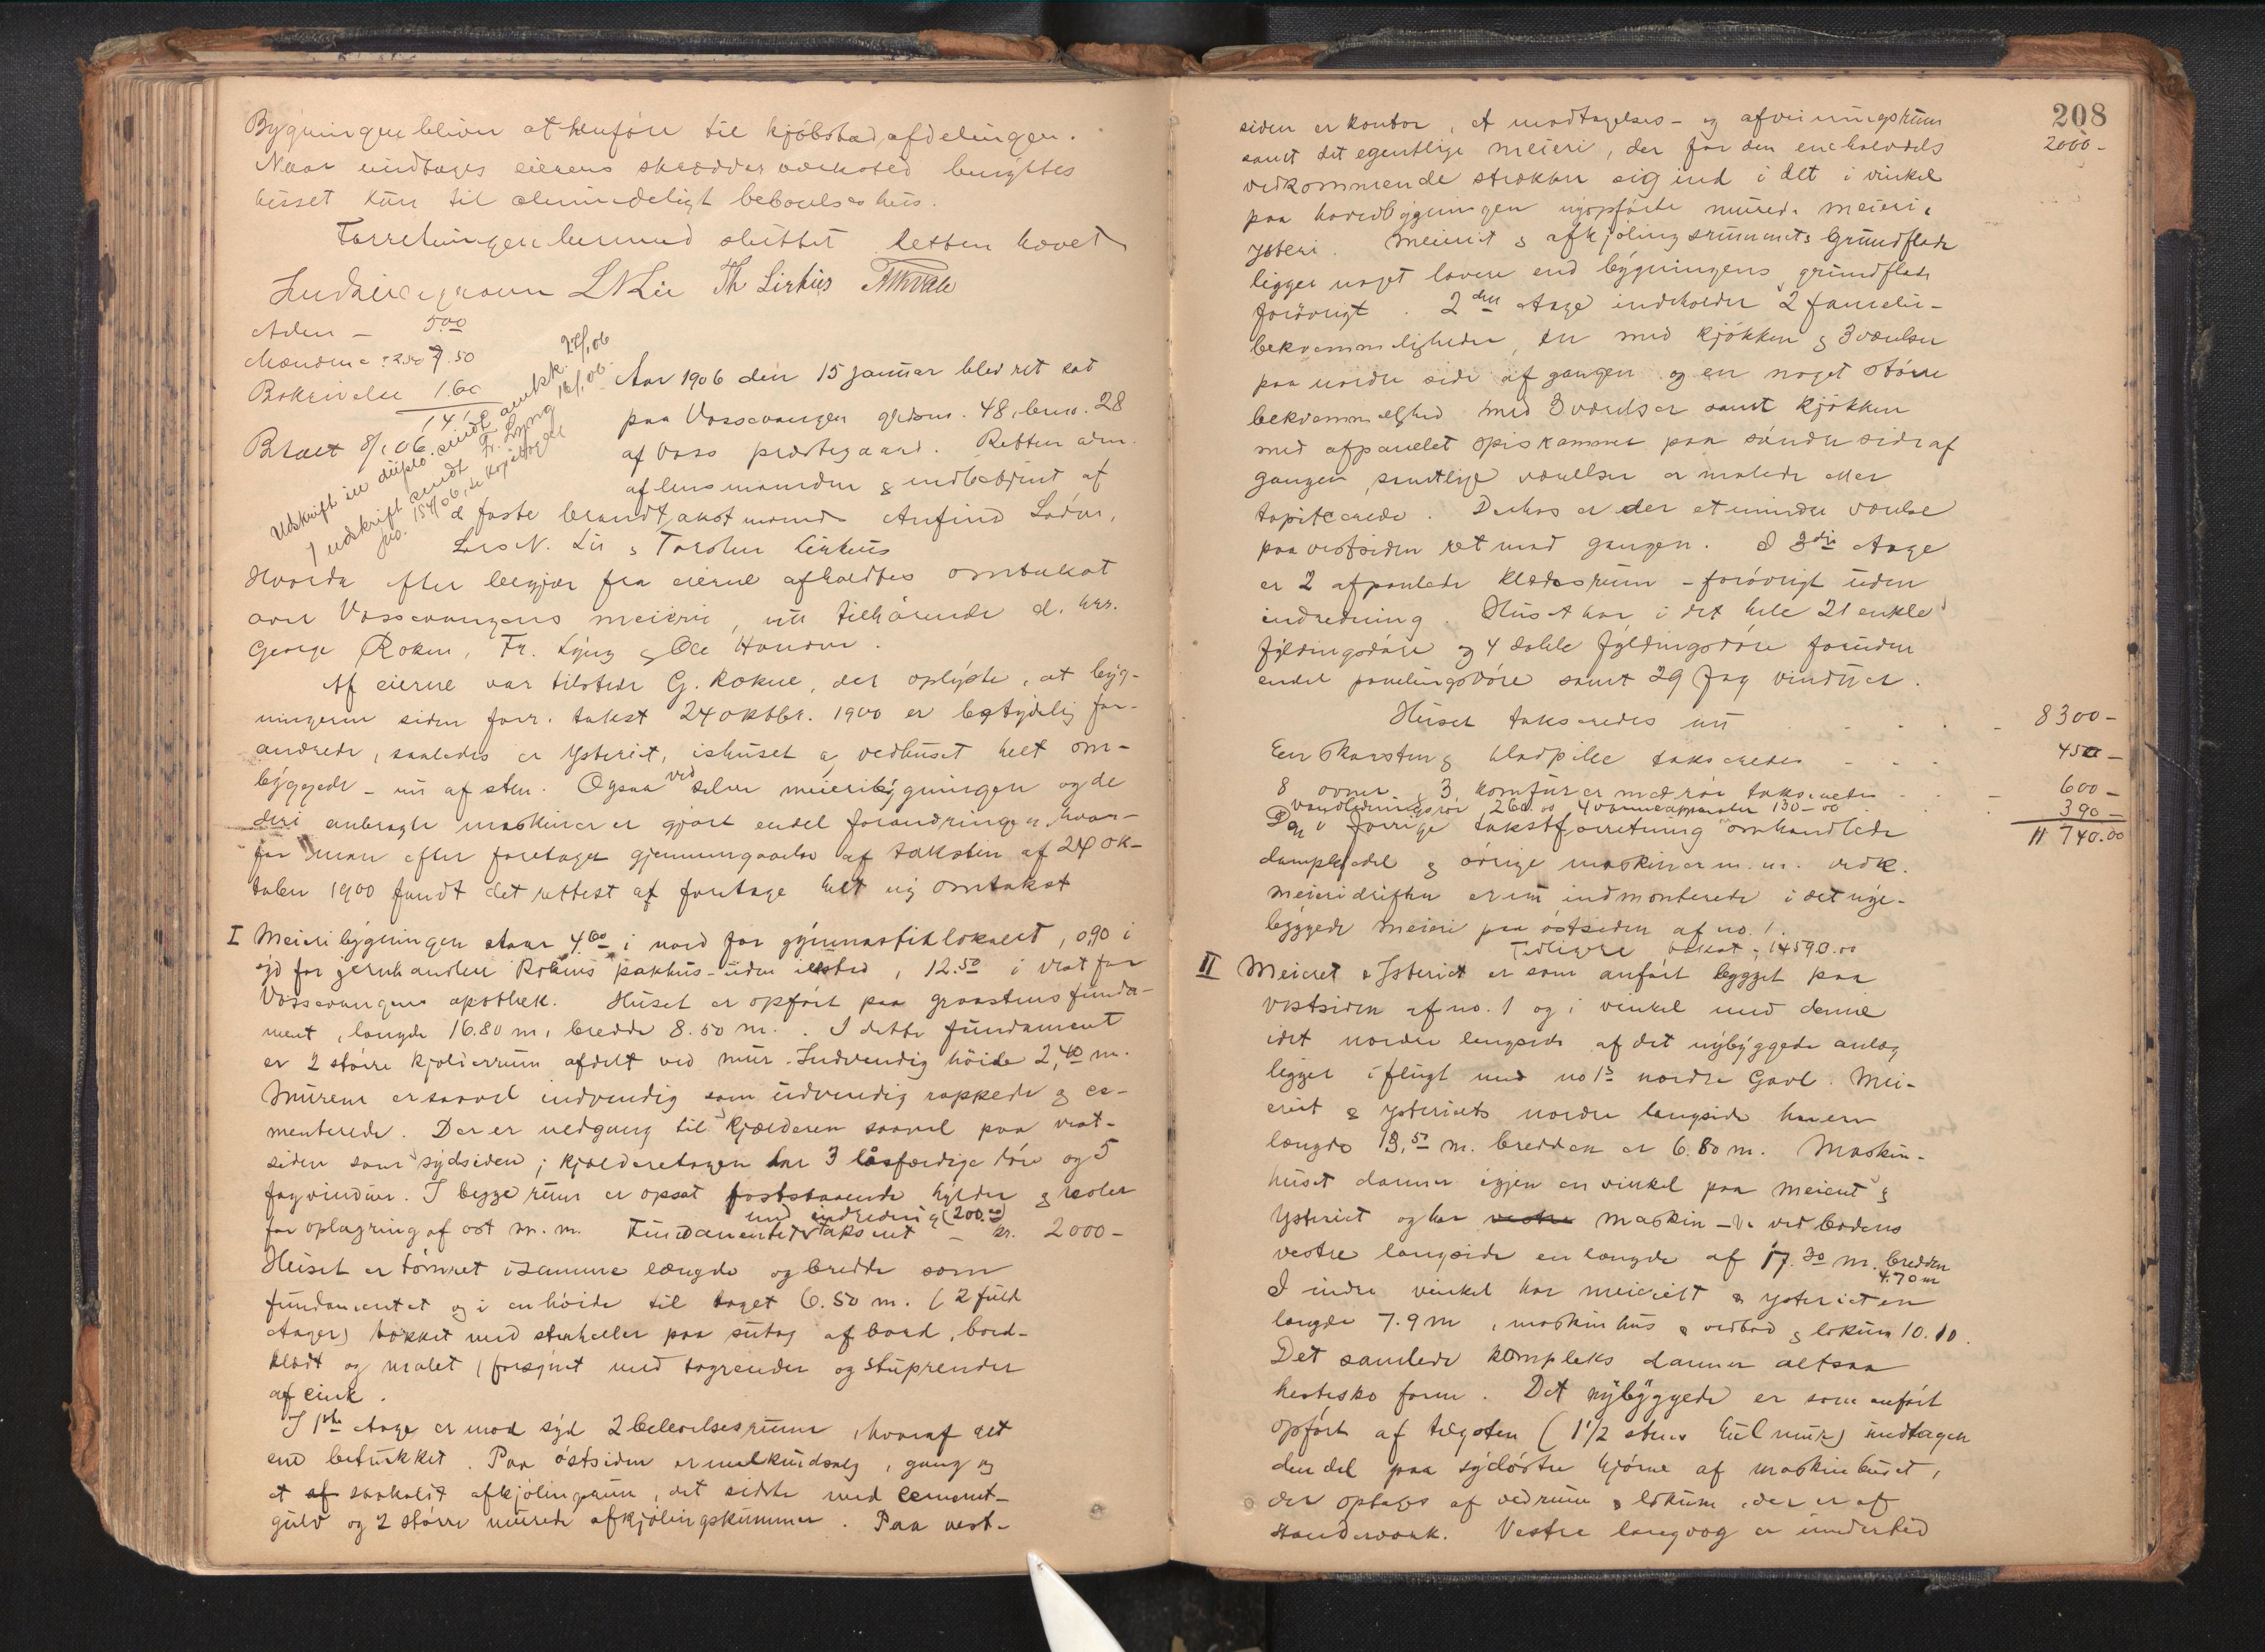 Bygningen bliver at henføre til kjøbstadafdelingen.
Naar undtages eierens skrædderværksted benyttes
huset kun til almindeligt beboelseshus.
Forretningen hermed sluttet Retten hævet
L N Lie Th Lirhus
Aden - 5.00
Mændene : 2.50 7.50
Beskrivelse 1.60
14.10
Betalt 8/1 06.
Udskrift in duplo sendt amtsk. 24/1 06
1 udskrift sendt Fr. Lyng 16/1 06
Aar 1906 den 15 januar blev ret sat
paa Vossevangen gardsno. 48, brno. 28
af Voss prestegaard. Retten adm.
af lensmanden & medbetjent af
d faste brandtakstmænd Anfind Lødve,
Lars N. Lie & Torsten Lirhus
Hvorda efter begjær fra eierne afholdtes omtakst
over Vossevangens meieri, nu tilhørende d. hrr.
George Rokne, Fr. Lyng & Ole Hansen.
Af eierne var tilstede G. Rokne, der oplyste, at byg-
ningerne siden forr. takst 24 oktbr. 1900 er betydelig for-
andrede, saaledes er Ysteriet, ishuset og vedhuset helt om-
byggede - nu af sten. Ogsaa ved selve meieribygningen og de
deri anbragte maskiner er gjort endel forandringer, hvor-
for man efter foretagen gjennemgaaelse af taksten af 24 ok-
tober 1900 fandt det rettest at foretage helt ny omtakst
I Meieribygningen staar 4.60 i nord for gymnastiklokalet, 0,90 i
syd for jernhandler Roknes pakhus - uden ildsted, 12.50 i vest for
Vossevangens apothek. Huset er opført paa graastens funda-
ment, længde 16.80 m, bredde 8.50 m. . I dette fundament
er 2 større kjælderrum afdelt ved mur. Indvendig høide 2,40 m.
Murene er saavel indvendig som udvendig rappede & ce-
menterede. Der er nedgang til kjælderen saavel paa vest-
siden som sydsiden; kjælderetagen har 3 låsfærdige døre og 5
fag vinduer. I begge rum er opsat faststaaende hylder & reoler
for oplagring af ost m. m. Fundamentet med indredning (200.00) takseret - kr. 2000 -
Huset er tømret i samme længde og bredde som
fundamentet og i en høide til taget 6.50 m. (2 fuld
etager) tækket med stenheller paa sutag af bord, bord-
klædt og malet, forsynet med tagrender og stuprender
af cink.
I 1ste etage er mod syd 2 beboelsesrum, hvoraf det
ene betrukket. Paa østsiden er melkeudsalg, gang og
et af saakaldt afkjølingsrum, det sidste med cement-
gulv og 2 større murede afkjølingskummer. Paa vest-
208
siden er kontor, et modtagelses - og afveiningsrum 2000 -
samt det egentlige meieri, der for den ene halvdels
vedkommende strækker sig ind i det i vinkel
paa hovedbygningen nyopførte murede meieri &
ysteri. Meieriet & afkjølingsrummets grundflade
ligger noget lavere end bygningens grundflade
forøvrigt. 2den etage indeholder 2 familie-
bekvemmeligheder, en med kjøkken & 3 værelser
paa nordre side af gangen og en noget større
bekvemmelighed med 3 værelser samt kjøkken
med afpanelet spiskammer paa søndre side af
gangen, samtlige værelser er malede eller
tapitcerede. Derhos er der et mindre værelse
paa vestsiden ret mod gangen. I 3die etage
er 2 afpanlede klædesrum - forøvrigt uden
indredning. Huset har i det hele 21 enkle
fyldingsdøre og 4 doble fyldingsdøre foruden
endel panelingsdøre samt 29 fag vinduer.
Huset takseredes nu 8300 -
Een skorsten & bladpille takseredes 450 -
8 ovner & 3 komfurer med rør takseredes 600 -
vandledningsrør 260.00, 4 varmeapparater 130-00 390 -
De i forrige takstforretning omhandlede 11 740.00
dampkjedel & øvrige maskiner m. m. vedk.
meieridriften er nu indmonterede i det nye-
byggede meieri paa østsiden af no. 1.
Tidligere takst: 14590.00
II Meieriet & Ysteriet er som anført bygget paa
vestsiden af no. 1 og i vinkel med denne
idet nordre langside af det nybyggede anlæg
ligger i flugt med no 1s nordre Gavl. Mei-
eriet & ysteriets nordre langside har en
længde 13,50 m. bredden er 6.80 m. Maskin-
huset danner igjen en vinkel paa meieriet &
Ysteriet og har vestre maskin - & vedbodens
vestre langside en længde af 17.30 m. bredden 4.70 m
I indre vinkel har meieriet & ysteriet en
længde 7.9 m, maskinhus & vedbod & lokum 10.10.
Det samlede kompleks danner altsaa
hestesko form. Det nybyggede er som anført
opført af teglsten (1 1/2 stens hulmur) undtagen
den del paa sydøstre hjørne af maskinhuset,
der optages af vedrum & lokum, der er af
standerværk. Vestre langvæg er underhed